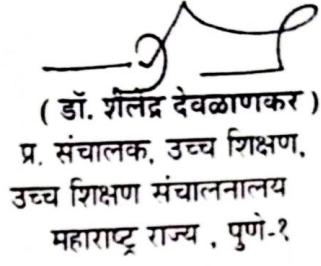 ( डॉ. शैलेंद्र देवळाणकर )
प्र. संचालक, उच्च शिक्षण,
उच्च शिक्षण संचालनालय
महाराष्ट्र राज्य , पुणे-१